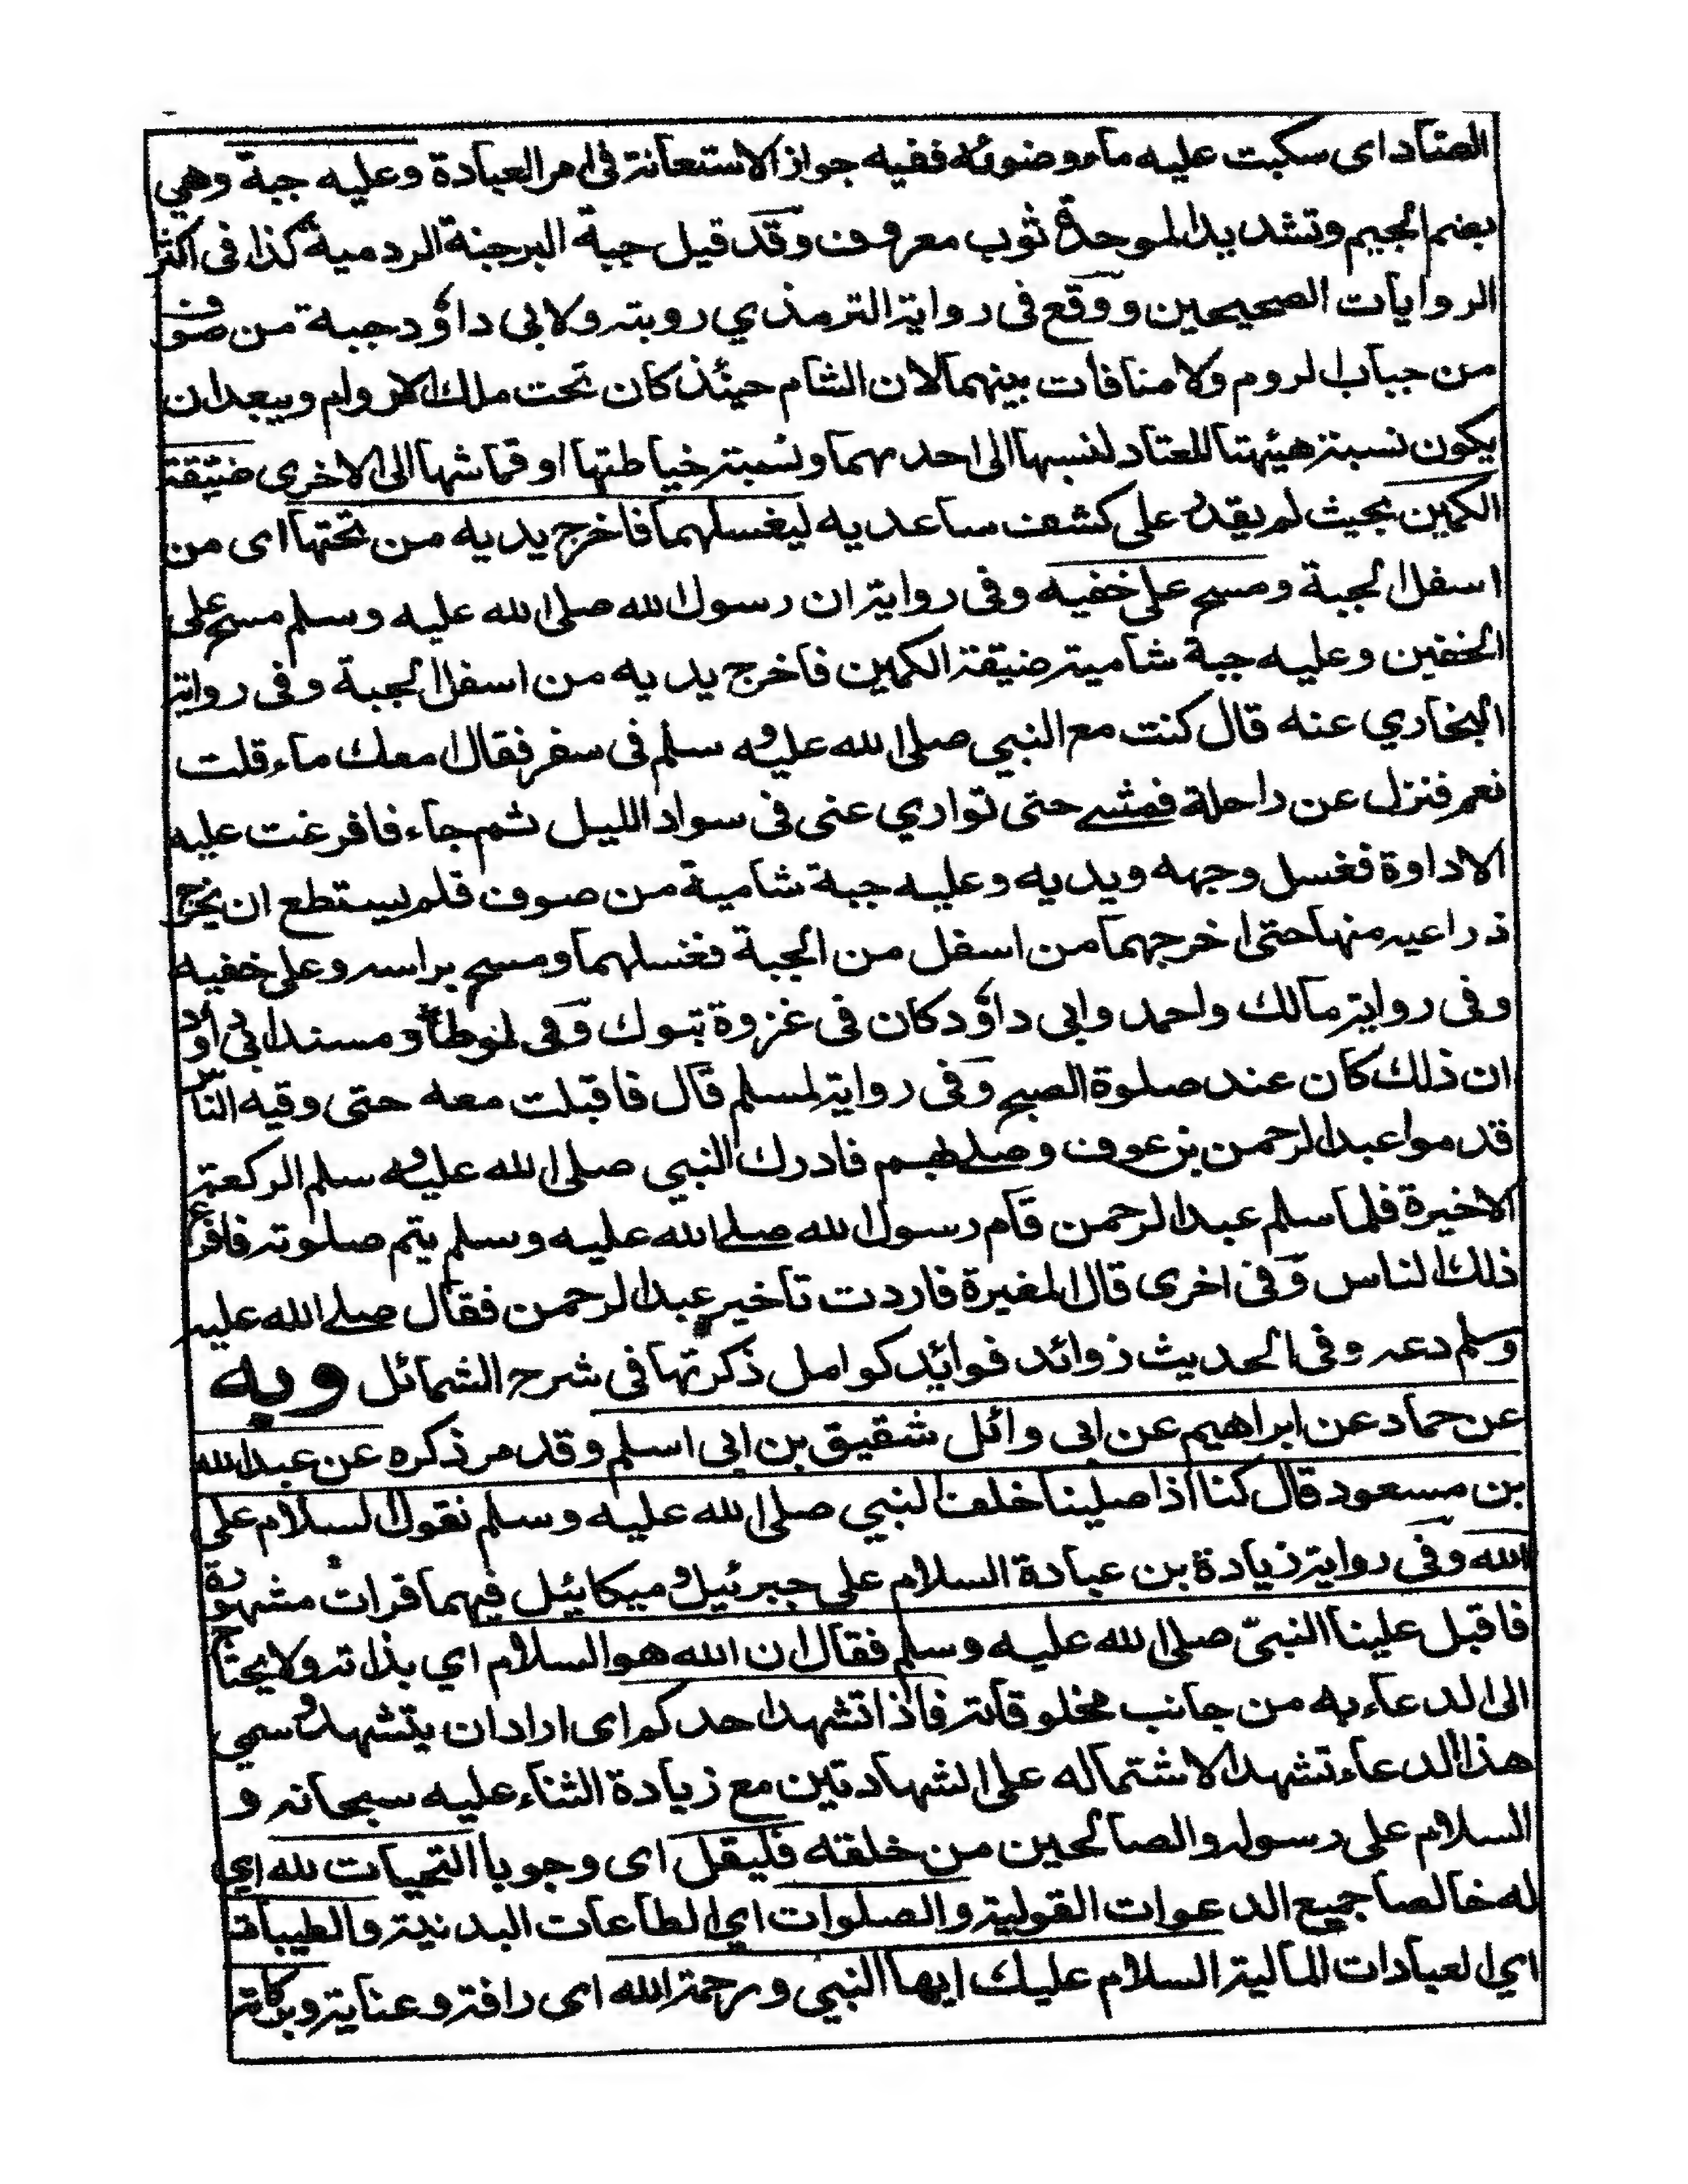 الصاد اى سكبت عليه ماء وضوئه ففيه جواز الاستعانة فى امر العبادة وعليه جبة وهي
بضم الجيم وتشديد الموحدة ثوب معروف وقد قيل جبة البرجنة الرومية كذا فى اكثر
الروايات الصحيحين ووقع فى رواية الترمذي روبته ولابى داؤد جبة من صوف
من جباب الروم ولا منافات بينهما لان الشام حينئذ كان تحت ملك الاروام ويبعد ان
يكون نسبة هيئتها للعتاد لنسبها الى احدىهما ونسبة خياطتها او قماشها الى الاخرى ضيقة
الكمين بحيث لم يقدر على كشف ساعديه ليغسلهما فاخرج يديه من تحتها اى من
اسفل الجبة ومسح على خفيه وفى رواية ان رسول الله صلى الله عليه وسلم مسح على
الخفين وعليه جبة شامية ضيقة الكمين فاخرج يديه من اسفل الجبة وفى رواية
البخاري عنه قال كنت مع النبي صلى الله عليه وسلم فى سفر فقال امعك ماء قلت
نعم فنزل عن داحلة فمشے حتى تواري عنى فى سواد الليل ثم جاء فافرغت عليه
الاداوة فغسل وجهه ويديه وعليه جبة شامية من صوف فلم يستطع ان يخرج
ذراعيه منها حتى اخرجهما من اسفل من الجبة فغسلهما ومسح براسه وعلى خفيه
وفى رواية مالك واحمد وابى داؤد كان فى غزوة تبوك وفى لموطأ ومسند ابي داؤد
ان ذلك كان عند صلوة الصبح وفى رواية لمسلم قال فاقبلت معه حتى وقيه الناس
قدموا عبد الرحمن بن عوف وصلے بهم فادرك النبي صلى الله عليه وسلم الركعة
الاخيرة فلما سلم عبد الرحمن قام رسول الله صلے الله عليه وسلم يتم صلوته فافزع
ذلك الناس وفى اخرى قال المغيرة فاردت تاخير عبد الرحمن فقال صلے الله عليه
وسلم دعه وفى الحديث زوائد فوائد كوامل ذكرتها فى شرح الشمائل وبه
عن حماد عن ابراهيم عن ابى وائل شقيق بن ابى اسلم وقد مر ذكره عن عبد الله
بن مسعود قال كنا اذا صلينا خلف النبي صلى الله عليه وسلم نقول السلام على
الله وفى رواية زيادة بن عبادة السلام على جبرئيل وميكائيل فيهما قرات مشهورة
فاقبل علينا النبيّ صلى الله عليه وسلم فقال ان الله هو السلام اي بذاته ولا يحتاج
الى الدعاء به من جانب مخلوقاته فاذا تشهد احدكم اى اراد ان يتشهد وسمي
هذا الدعاء تشهد الاشتماله على الشهادتين مع زيادة الثناء عليه سبحانه و
السلام على رسوله والصالحين من خلقه فليقل اى وجوبا التحيات لله اي
له خالصا جميع الدعوات القولية والصلوات اي الطاعات البدنية والطيبات
اي العبادات المالية السلام عليك ايها النبي ورحمة الله اى رافة وعناية وبركاته